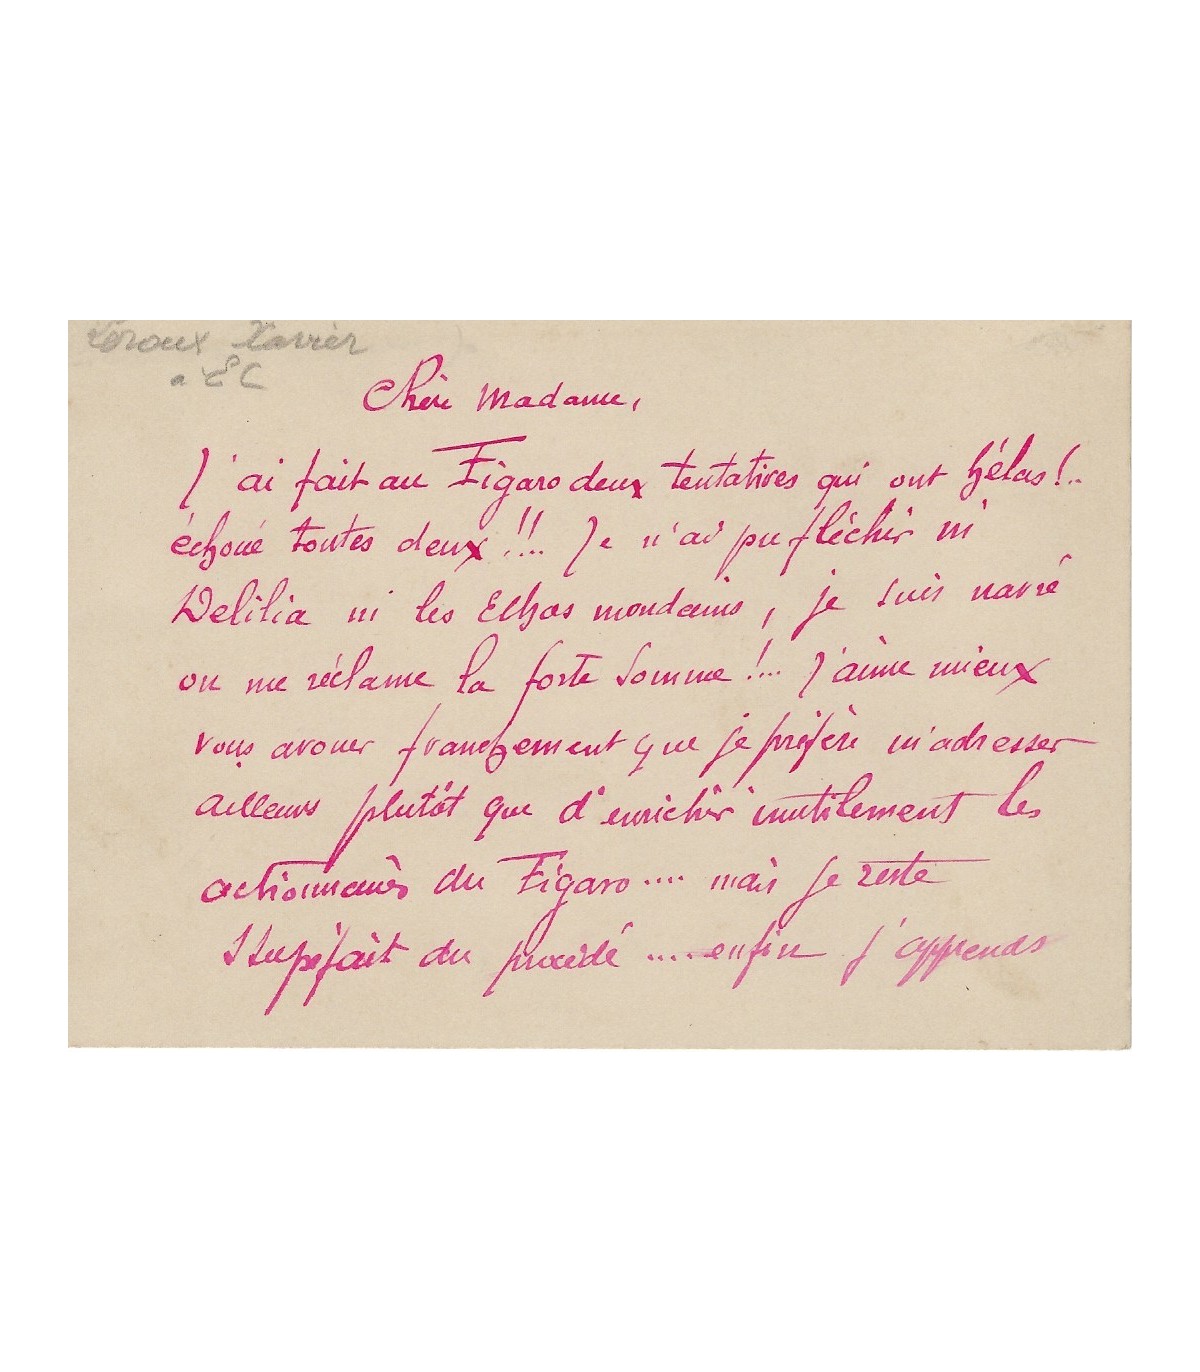 Leroux Xavier
a EC
Chère Madame,
J'ai fait au Figaro deux tentatives qui ont hélas!..
échoué toutes deux!!... Je n'ai pu fléchir ni
Delilia ni les Echos mondains, je suis navré
on me réclame la forte somme!... J'aime mieux
vous avouer franchement que je préfère m'adresser
ailleurs plutôt que d'enrichir inutilement les
actionnaires du Figaro.... mais je reste
stupéfait du procédé ....enfin j'apprends